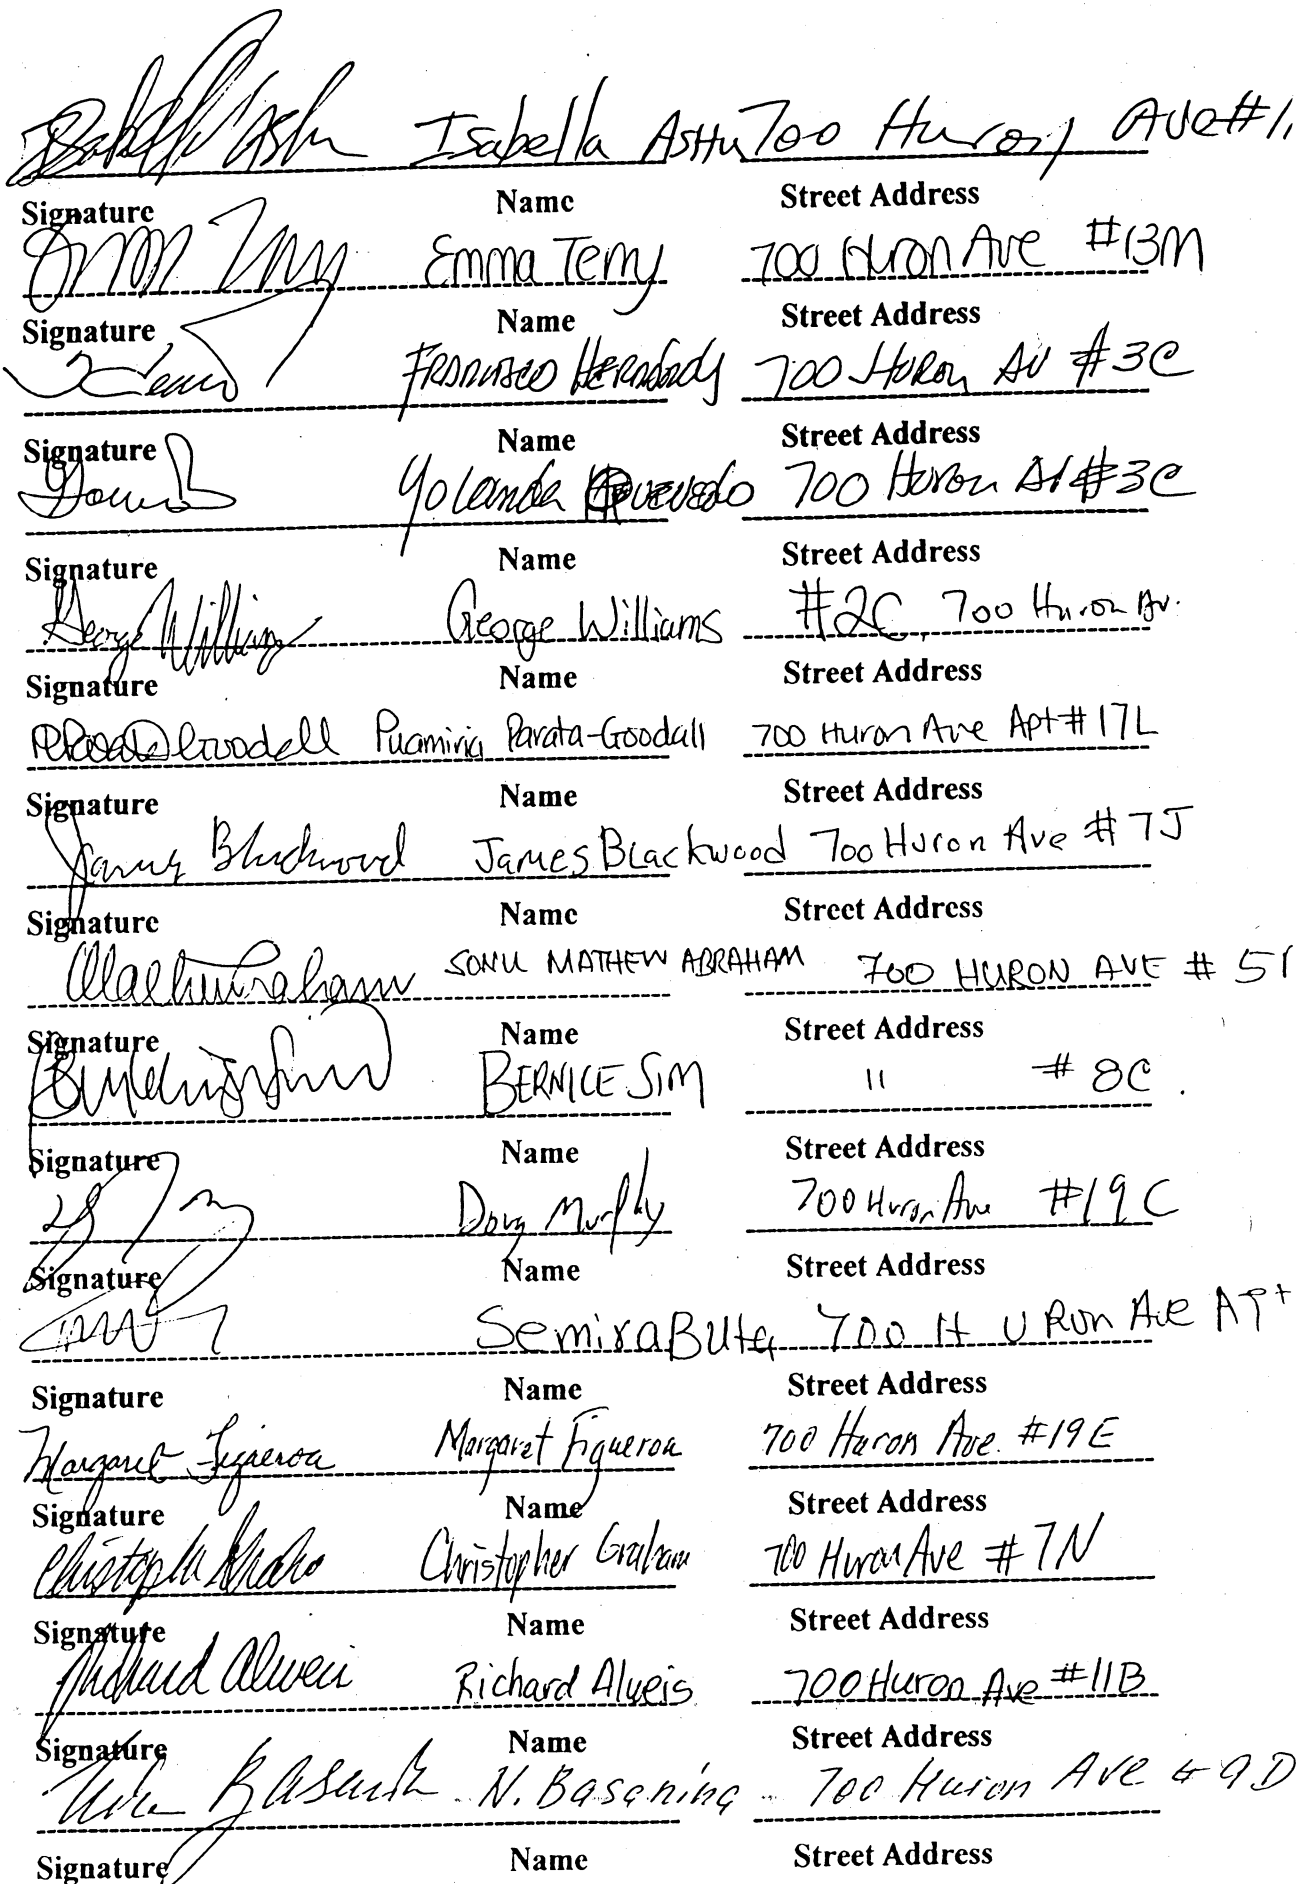 Isabella Ashu 700 Huron Ave #1
Signature Name Street Address
Emma Terry 700 Huron Ave #13M
Signature Name Street Address
Francisco 700 Huron Av #3C
Signature Name Street Address
Yolanda 700 Huron Av #3C
Signature Name Street Address
George Williams George Williams #2C, 700 Huron Av.
Signature Name Street Address
Goodall Puamiria Parata-Goodall 700 Huron Ave Apt #17L
Signature Name Street Address
James Blackwood James Blackwood 700 Huron Ave #7J
Signature Name Street Address
SONU MATHEW ABRAHAM 700 HURON AVE # 5I
Signature Name Street Address
BERNICE SIM " # 8C.
Signature Name Street Address
Doug Murphy 700 Huron Ave #19C
Signature Name Street Address
Semira Buta 700 HURon Ave APt
Signature Name Street Address
Margaret Figueroa Margaret Figueroa 700 Huron Ave. #19E
Signature Name Street Address
Christopher Graham 700 Huron Ave #7N
Signature Name Street Address
Richard Alweis Richard Alweis 700 Huron Ave #11B
Signature Name Street Address
N. Basanina 700 Huron Ave # 9D
Signature Name Street Address